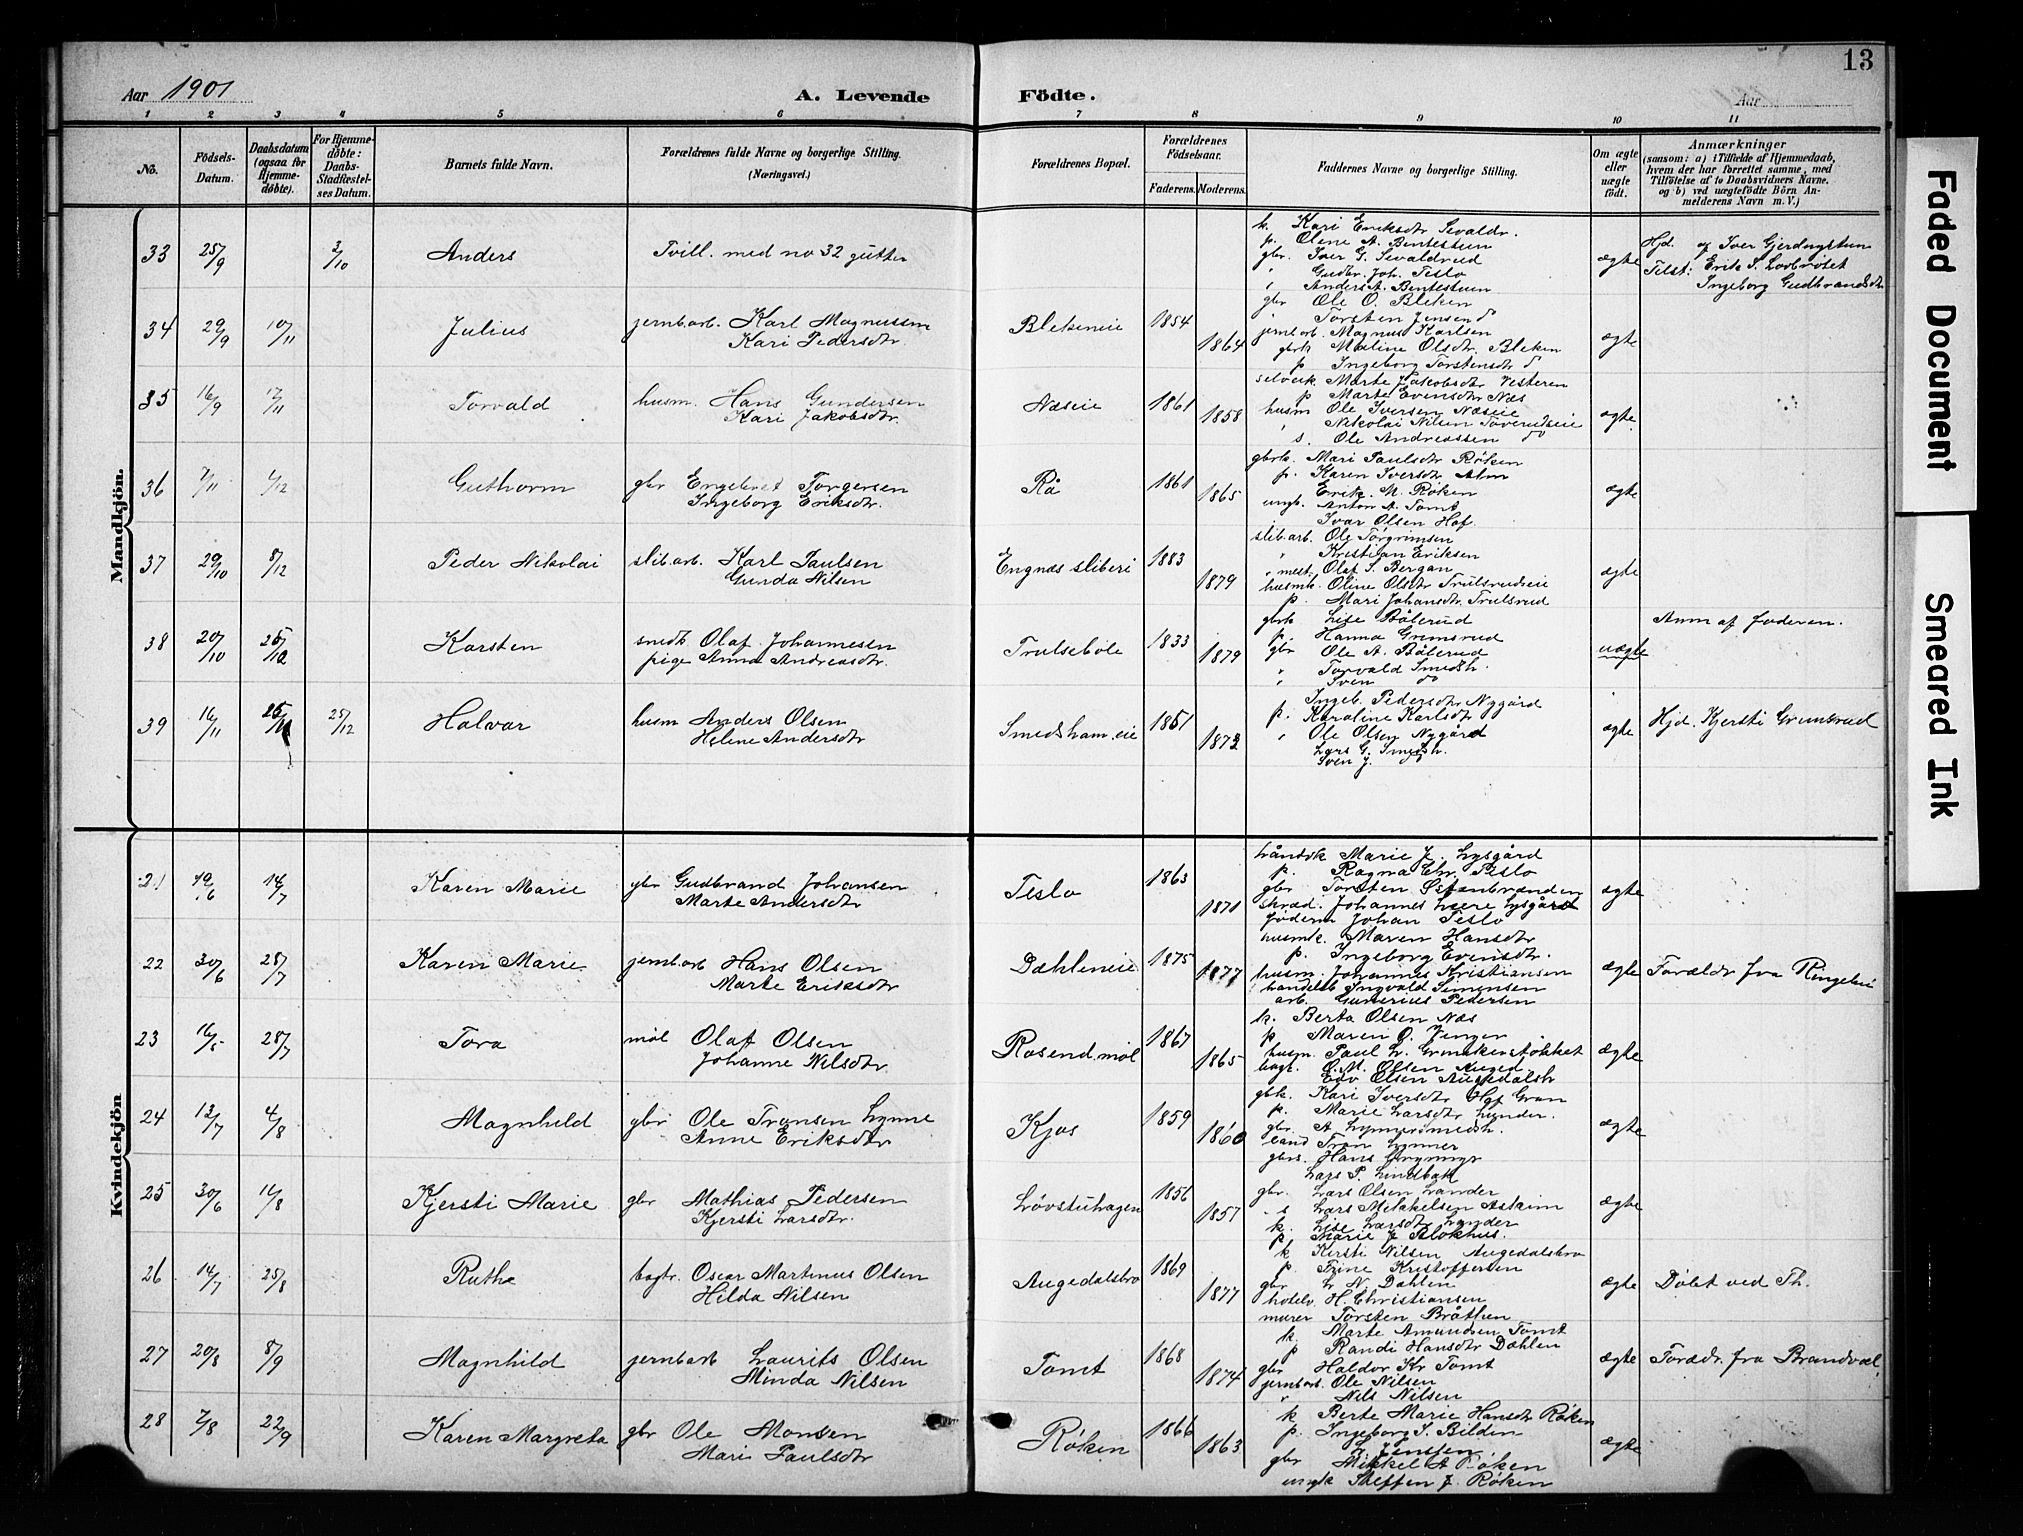 13
Aar 1901
A. Levende Födte.
Aar
1 2 3 4 5 6 7 8 9 10 11
No.
Födsels-Datum.
Daabsdatum (ogsaa for Hjemme-döbte).
For Hjemme-döbte: Daabs-Stadfæstel-ses Datum.
Barnets fulde Navn.
Forældrenes fulde Navne og borgerlige Stilling. (Næringsvei.)
Forældrenes Bopæl.
Forældrenes Födselsaar.
Faderens. Moderens.
Faddernes Navne og borgerlige Stilling.
Om ægte eller uægte födt.
Anmærkninger
(saasom: a) i Tilfælde af Hjemmedaab,
hvem der har forrettet samme, med
Tilföielse af to Daabsvidners Navne,
og b) ved uægtefödte Börn An-
melderens Navn m. V.)
Mandkjön.
33 25/9 3/10 Anders Tvill. med no 32 gutter ægte
k. Kari Eriksdtr Sevaldr.
p. Olene A. Bentestuen
gbr. Iver G. Sevaldrud
Gudbr. Joh. Teslo
Anders A. Bentestuen
Hjd. af Iver Gjerdingstuen
Tilst: Erik S. Lovbrøtet
Ingeborg Gudbrandsdtr
34 29/9 10/11 Julius jernb.arb. Karl Magnussen
Kari Pedersdtr
Blekeneie 1854 1864 ægte
gbr Ole O. Bleken
Torsten Jensen do
jernb.arb. Magnus Karlsen
gbrk Maline Olsdtr Bleken
p Ingeborg Torstensdtr do
35 16/9 17/11 Torvald husm. Hans Gundersen
Kari Jakobsdtr
Næseie 1861 1858 ægte
selveik. Marte Jakobsdtr Vesteren
p Marte Evensdtr Næs
husm Ole Iversen Næseie
Nikolai Nilsen Toverudseie
s. Ole Andreassen do
36 7/11 1/12 Guthorm gbr Engebret Torgersen
Ingeborg Eriksdtr.
Rå 1861 1865 ægte
gbrk. Mari Paulsdtr Røken
p. Karen Iversdtr Alm
Erik. M. Røken
ungk. Anton A. Tomt
Ivar Olsen Hof
37 29/10 8/12 Peder Nikolai slib.arb. Karl Paulsen
Gunda Nilsen
Engnæs sliberi 1883 1879 ægte
slib.arb. Ole Torgrimsen
Kristian Eriksen
mest. Olaf S. Bergan
husmk. Oline Olsdtr Trulsrudseie
p. Mari Johansdtr. Trulsrud
38 20/10 25/12 Karsten snedk Olaf Johannesen
pige Anna Andreasdtr.
Trulsebøle 1833 1879 uægte
gbrk Lise Bølerud
p. Hanna Grimsrud
gbr Ole A. Bølerud
Torvald Smedsh.
Sven do
Anm af faderen.
39 16/11 25/12 Halvar husm Anders Olsen
Helene Andersdtr
Smedsham.eie 1851 1873 ægte
Ingeb. Pedersdtr Nygård
p. Karoline Karlsdtr
Ole Olsen Nygård
Lars G. Smedsh.
Sven J. do
Hjd. Kjersti Grimsrud
Kvindekjön
21 19/6 14/7 Karen Marie gbr Gudbrand Johansen
Marte Andersdtr
Teslo 1863 1871 ægte
Marie J. Lysgård
p. Ragna Chr. Teslo
gbr Torsten Stenbrænden
skræd. Johannes Lysgård
føderm Johan Teslo
22 30/6 28/7 Karen Marie jernb.arb Hans Olsen
Marte Eriksdtr
Dæhleneie 1875 1877 ægte
husmk. Maren Hansdtr
p. Ingeborg Evensdtr.
husm. Johannes Kristiansen
handelsb Ingvald Simensen
arb. Gunerius Pedersen
Forældr. fra Ringebu
23 16/5 28/7 Tora møl Olaf Olsen
Johanne Nilsdtr
Rosend. møl 1867 1865 ægte
k. Berta Olsen Næs
p Maren O. Vinger
husm. Paul L. Grinakerstokket
bagt. O.M. Olsen Auged.
Edv Olsen Augedalsh
24 12/7 4/8 Magnhild gbr Ole Transen Lynne
Anne Eriksdtr
Kjos 1859 1860 ægte
gbk. Kari Iversdtr Hof Gran
p. Marie Larsdtr Lunder.
gbr. A Lynnersmedsh.
cand Tron Lynner
gbrs. Hans Grymyr
25 30/6 14/8 Kjersti Marie gbr Mathias Pedersen
Kjersti Larsdtr.
Løvstuhagen 1856 1857 ægte
Lars P. Lindbak
gbr. Lars Olsen Lander
s Lars Mikkelsen Askim
k. Lise Larsdtr Lander
p. Marie J Blokhus.
26 14/7 25/8 Ruth bagtr. Oscar Martinus Olsen
Hilda Nilsen
Augedalsbro 1869 1877 ægte
k Kersti Nilsen Augedalsbro
p Trine Kristoffersen
gbr L. N. Dæhlen
hotelv. H. Christiansen
murer Torsten Bråthen
Døbt ved Th.
27 20/8 8/9 Magnhild jernb.arb Laurits Olsen
Minda Nilsen
Tomt 1868 1874 ægte
k. Marte Amundsen Tomt
p Randi Hansdtr Dæhlen
gbr Haldor Kr Tomt
jernb.arb. Ole Nilsen
Nils Nilsen
Forældr. fra Brandval
28 7/8 22/9 Karen Margreta gbr Ole Monsen
Mari Paulsdtr
Røken 1866 1863 ægte
k Berte Marie Hansdtr Røken
p. Ingeborg S. Bilden
L. Jensen
gbr Mikkel A Røken
ungk Steffen J. Røken
Faded Document
Smeared Ink